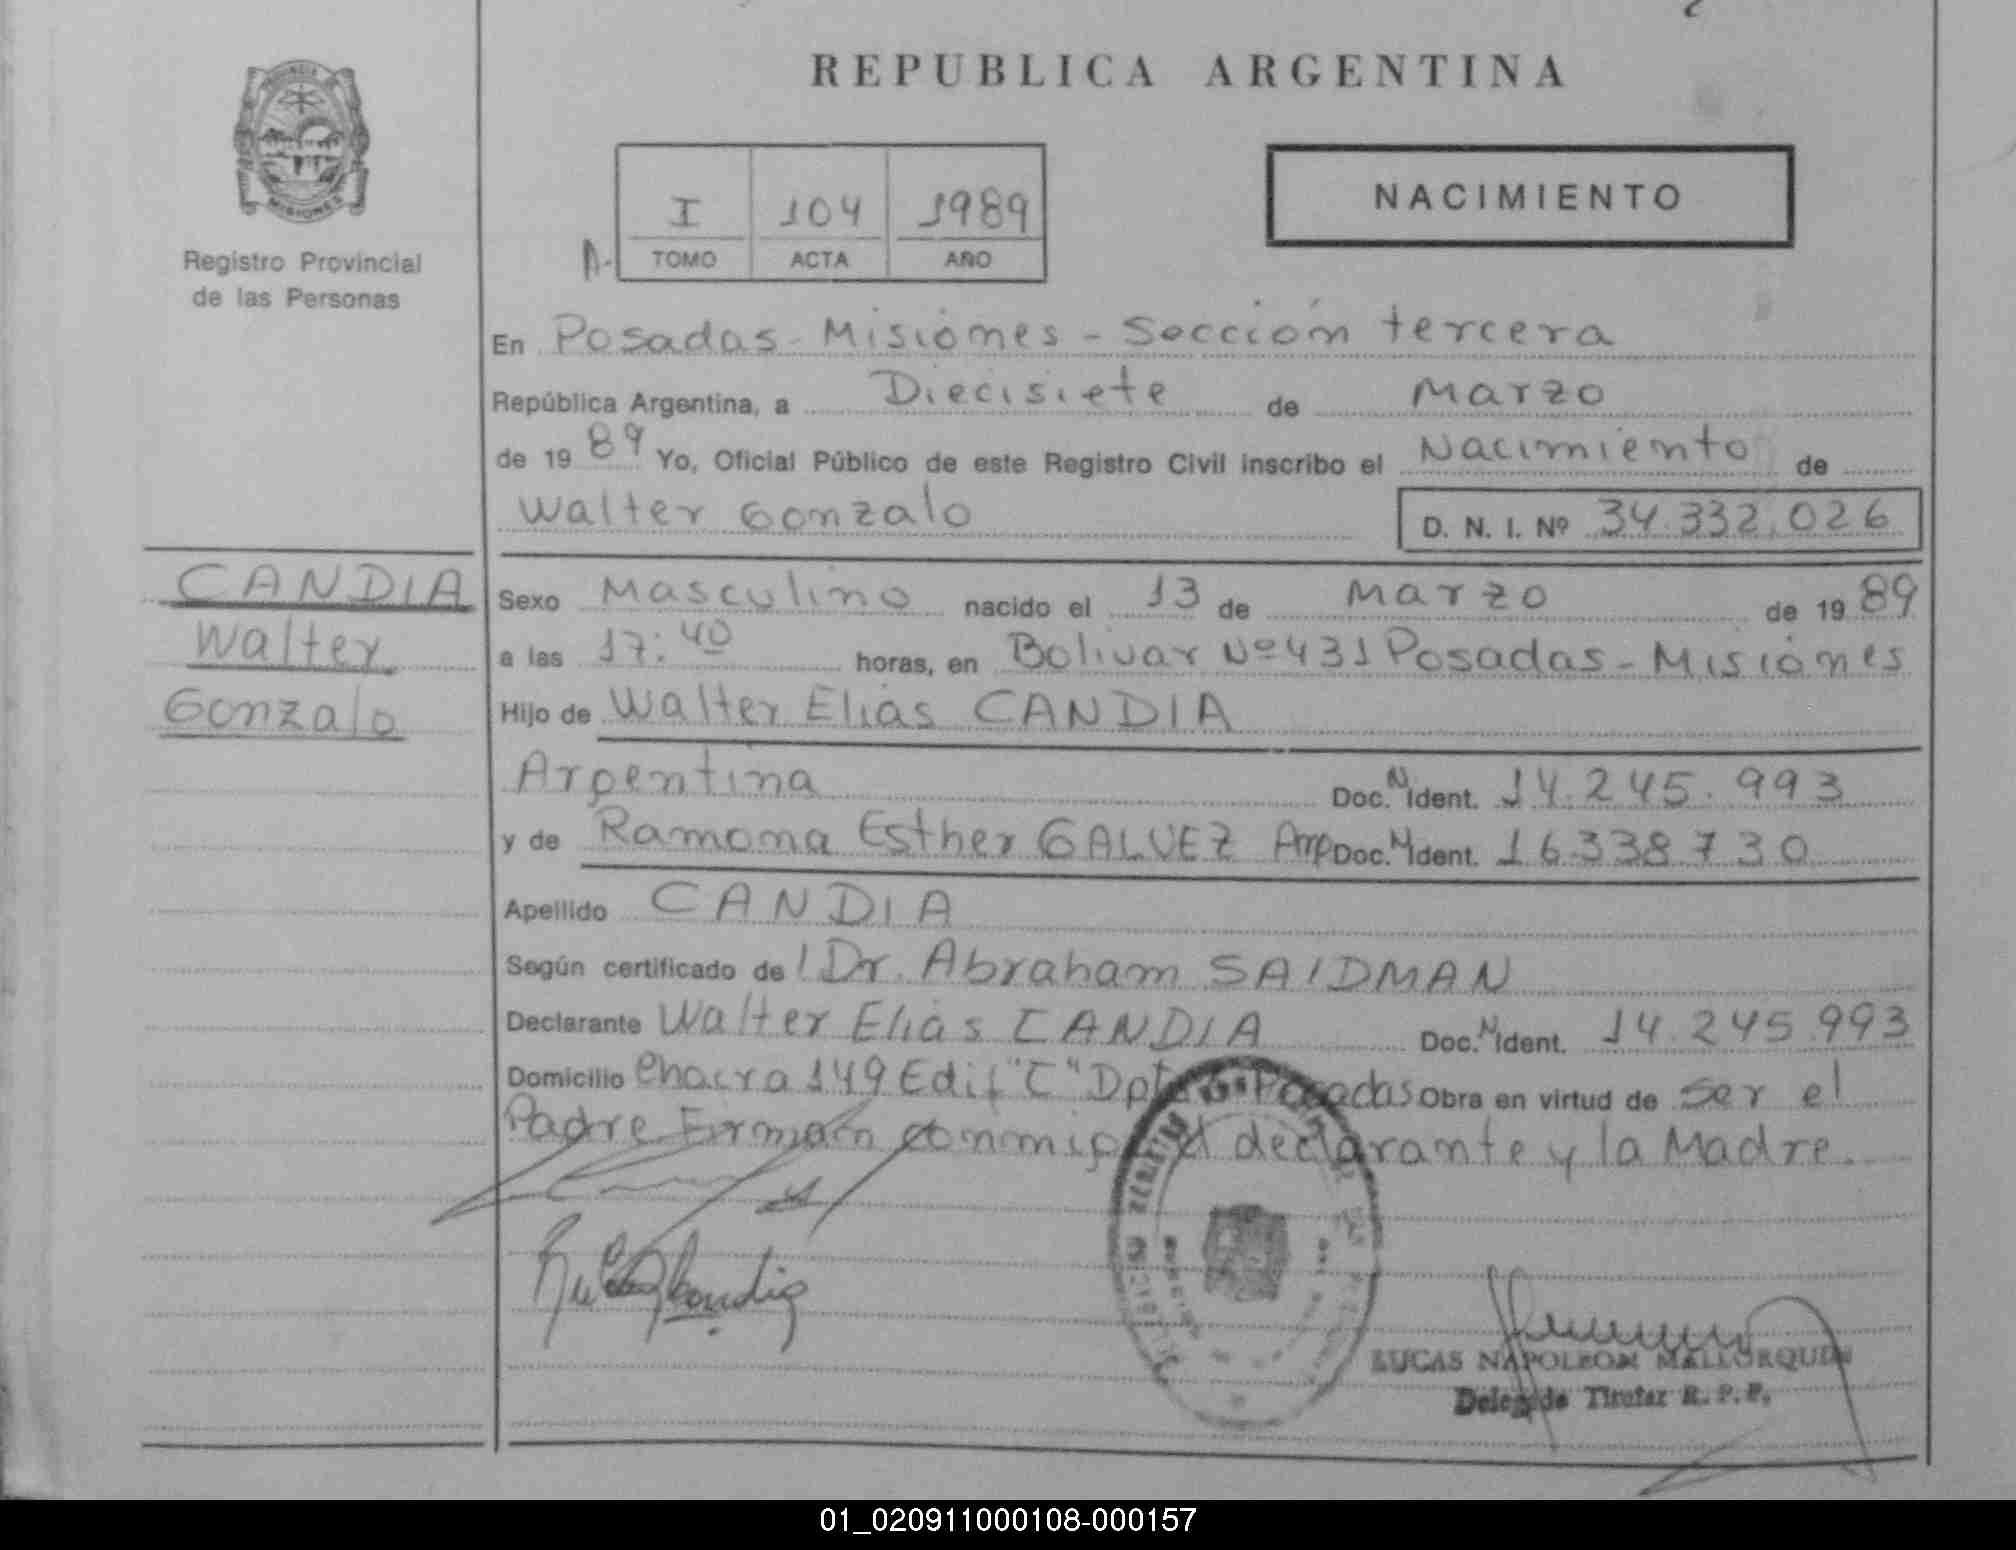 REPUBLICA ARGENTINA
PROVINCIA
MISIONES
Registro Provincial
de las Personas
I 104 1989
A- TOMO ACTA AÑO
NACIMIENTO
En Posadas - Misiones - Sección tercera
República Argentina, a Diecisiete de Marzo
de 19 89 Yo, Oficial Público de este Registro Civil inscribo el Nacimiento de
Walter Gonzalo D. N. I. Nº 34.332.026
CANDIA
Walter
Gonzalo
Sexo Masculino nacido el 13 de Marzo de 19 89
a las 17:40 horas, en Bolivar Nº 431 Posadas - Misiones
Hijo de Walter Elias CANDIA
Argentina Doc. N. Ident. 14.245.993
y de Ramona Esther GALVEZ Arg Doc. N. Ident. 16338730
Apellido CANDIA
Según certificado de l Dr. Abraham SAIDMAN
Declarante Walter Elias CANDIA Doc. N. Ident. 14.245.993
Domicilio Chacra 149 Edif "C" Dpto Posadas Obra en virtud de ser el
Padre Firman conmigo el declarante y la Madre.
LUCAS NAPOLEON MALLORQUIN
Delegado Titular R. P. P.
01_020911000108-000157